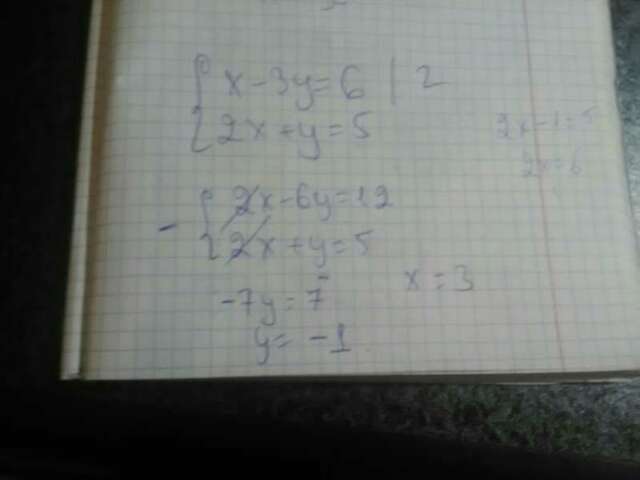 x - 3y = 6 | 2
2x + y = 5
2x - 1 = 5
2x = 6
- 2x - 6y = 12
2x + y = 5
-7y = 7
x = 3
y = -1